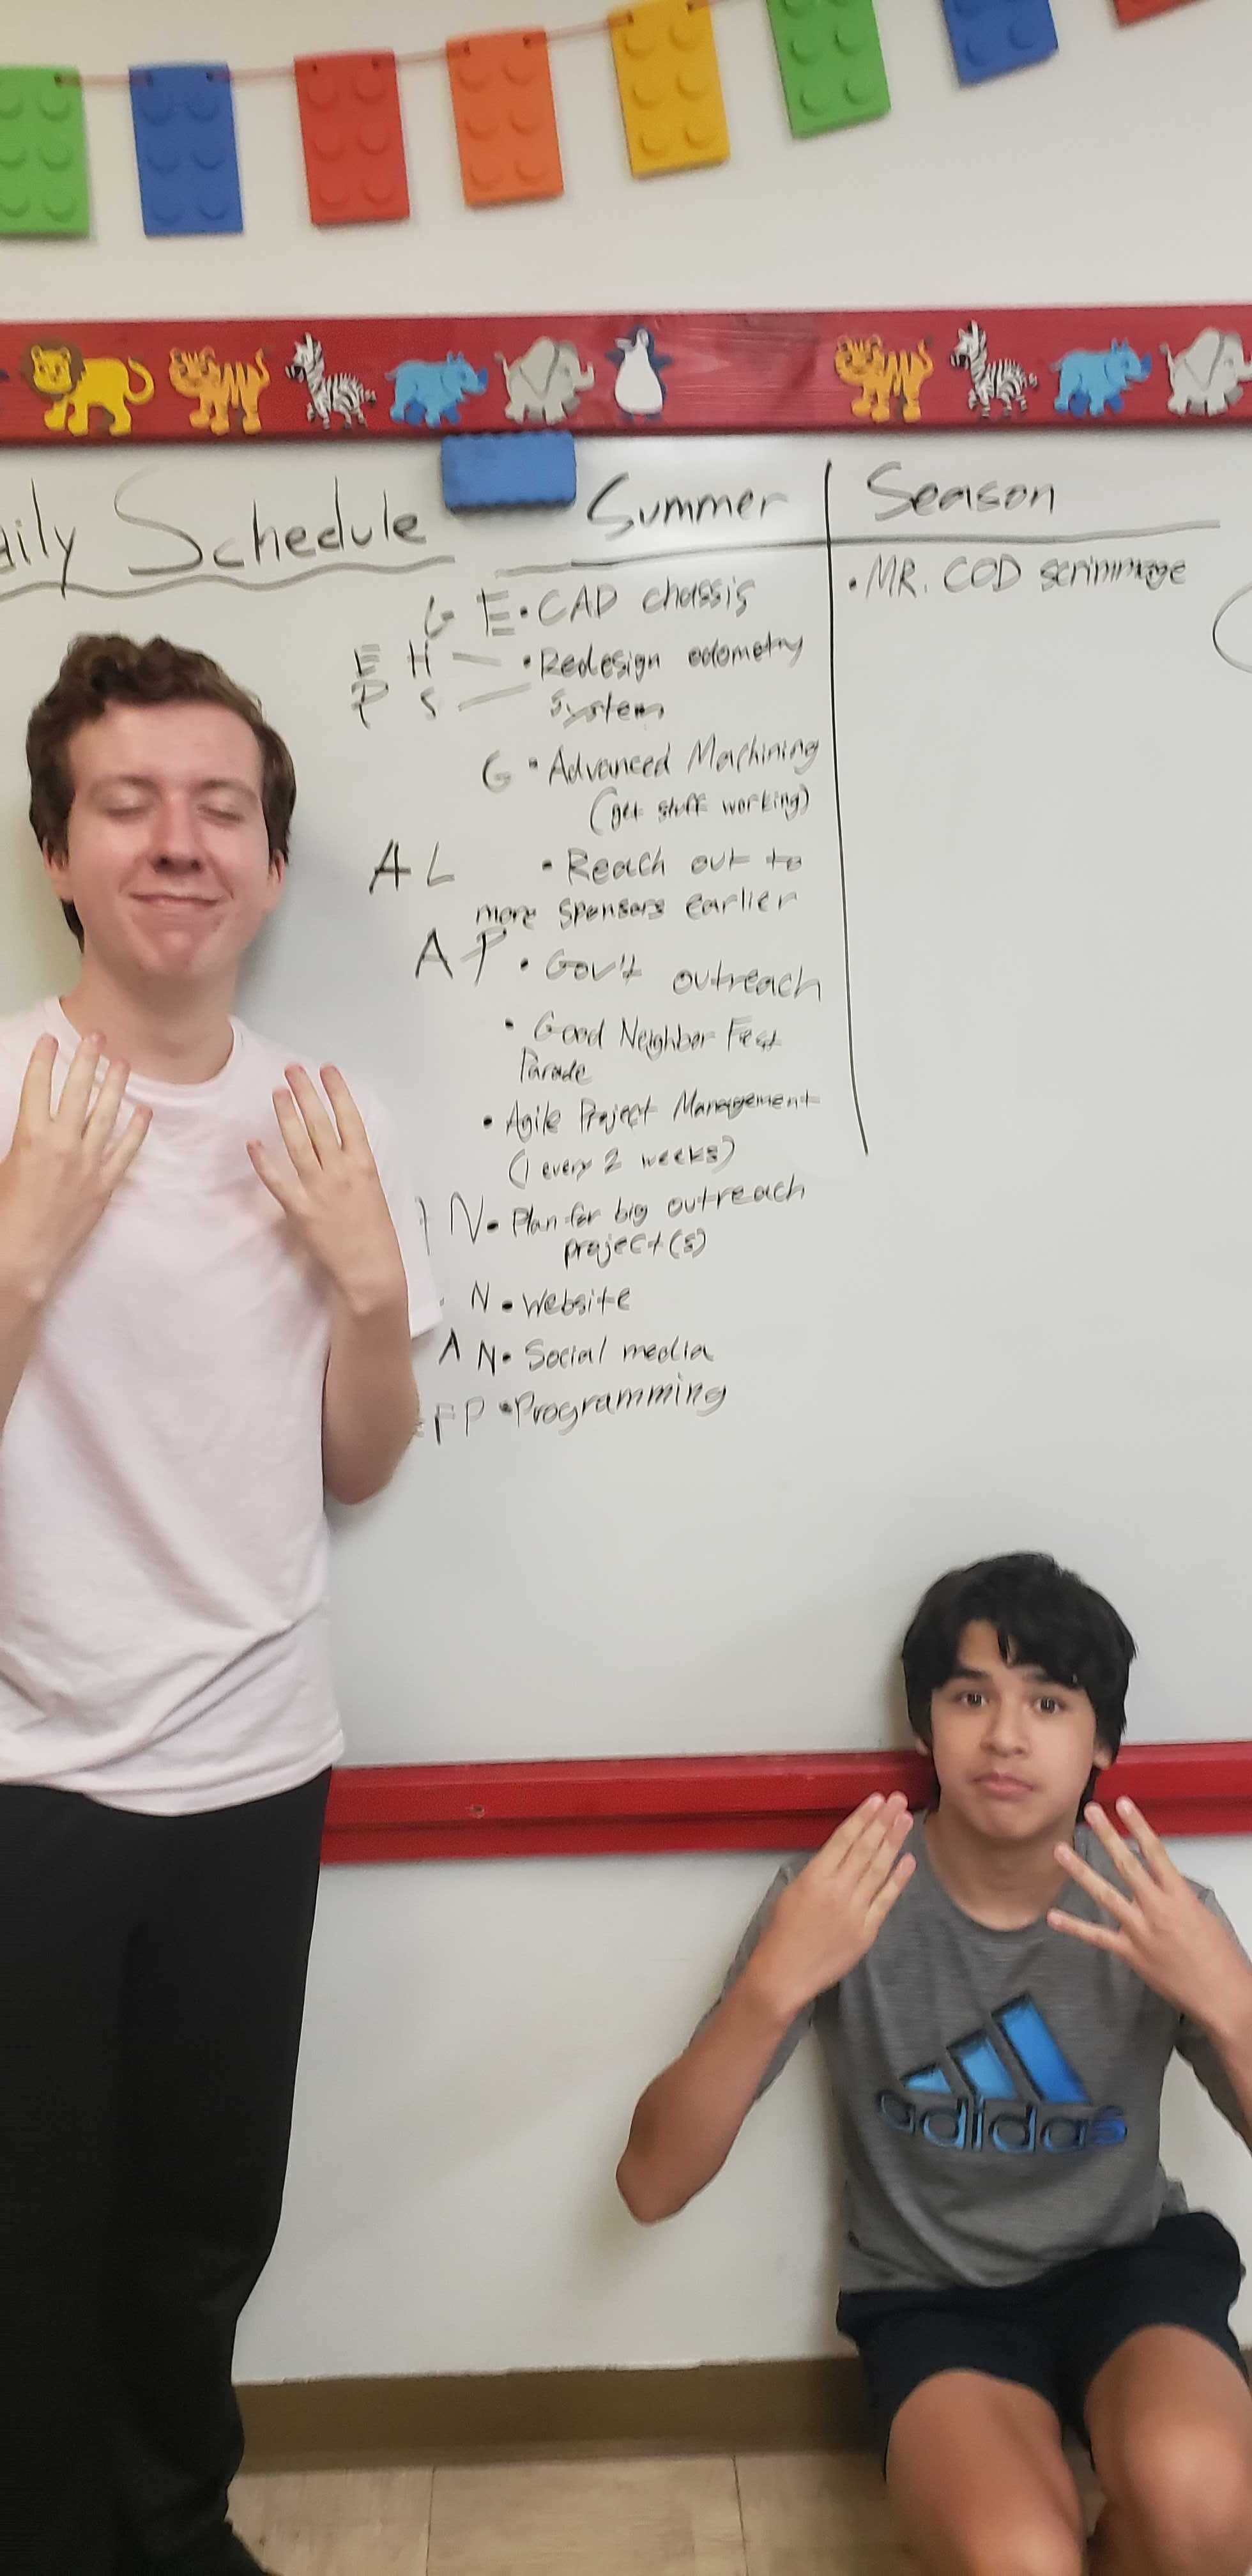 aily Schedule
Summer
Season
G E • CAD chassis
E H — • Redesign odometry
P S — system
G • Advanced Machining
(get stuff working)
A L • Reach out to
more sponsors earlier
A P • Gov't outreach
• Good Neighbor Fest
Parade
• Agile Project Management
(1 every 2 weeks)
N • Plan for big outreach
project(s)
N • Website
A N • Social media
FP • Programming
• MR. COD scrimmage
adidas